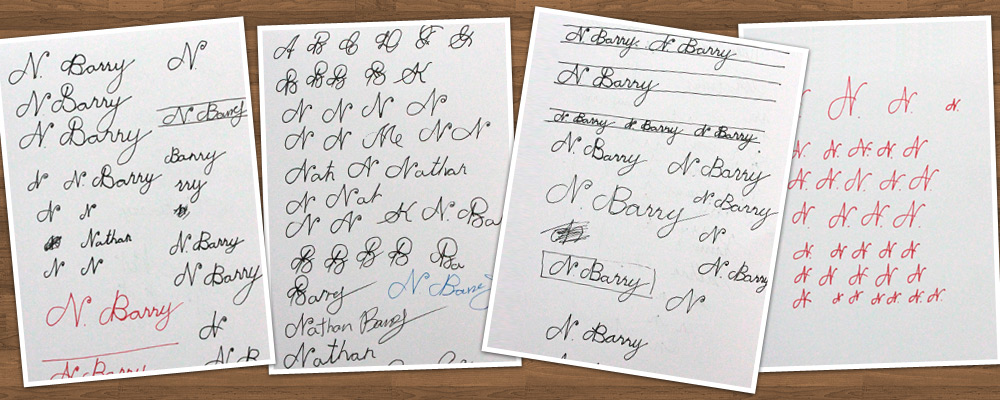 N. Barry N.
N Barry
N Barry
N. Barry
Barry
N N. Barry
rry
N N
Nathan
N. Barry
N N
N Barry
N. Barry
N
N B
N. Barry
A B C D F G
B B B B K
N N N N
N N Me N N
Nath N Nathan
N Nat
N N K N. Ba
B B B B Ba
Barry N Barry
Nathan Barry
Nathan
N Barry. N Barry
N Barry
N Barry N Barry N Barry.
N. Barry N. Barry
N. Barry N. Barry
N
N Barry N. Barry
N
N. Barry
N. N. N.
N. N. N. N. N.
N. N. N N. N.
N N. N. N.
N. N N N N
N N N N N
N. N N N N N. N.